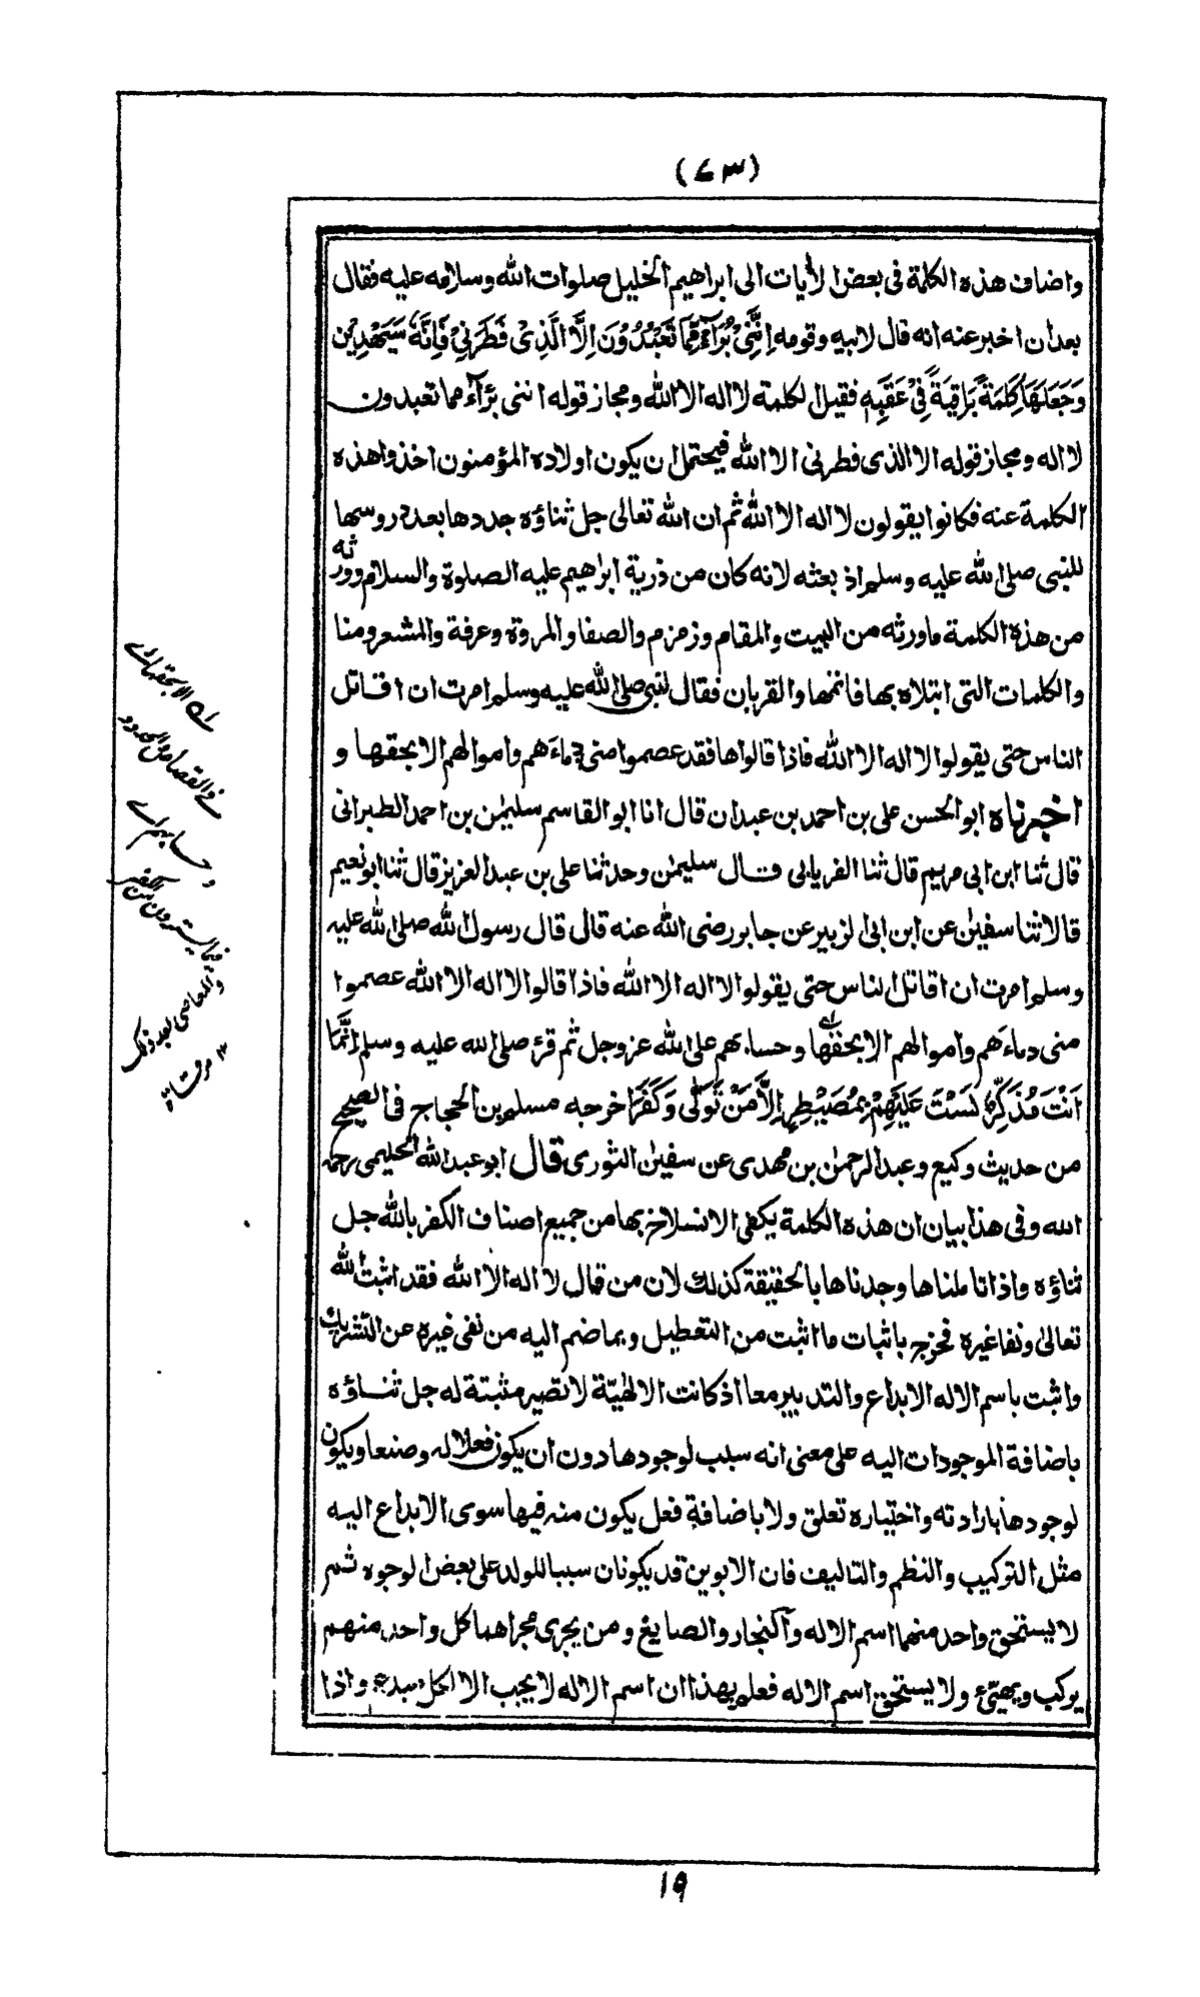 (٧٣)
واضاف هذه الكلمة فى بعض الأيات الى ابراهيم الخليل صلوات الله وسلامه عليه فقال
بعد ان اخبر عنه انه قال لابيه وقومه اِنَّنِىْ بُرَآءٌ مِّمَّا تَعْبُدُوْنَ اِلَّا الَّذِىْ فَطَرَنِىْ فَاِنَّهٗ سَيَهْدِيْنِ
وَجَعَلَهَا كَلِمَةً بَاقِيَةً فِىْ عَقِبِهٖ فقيل الكلمة لا اله الا الله ومجاز قوله اننى برٓاء مما تعبدون
لا اله ومجاز قوله الا الذى فطرنى الا الله فيحتمل ان يكون اولاده المؤمنون اخذوا هذه
الكلمة عنه فكانوا يقولون لا اله الا الله ثم ان الله تعالى جل ثناؤه جددها بعد دروسها
للنبى صلى الله عليه وسلم اذ بعثه لانه كان من ذرية ابراهيم عليه الصلوة والسلام وورثه
من هذه الكلمة ماورثه من البيت والمقام وزمزم والصفا والمروة وعرفة والمشعر ومنا
والكلمات التى ابتلاه بها فاتمها والقربان فقال لنبى صلى الله عليه وسلم امرت ان اقاتل
الناس حتى يقولوا لا اله الا الله فاذا قالوها فقد عصموا منى دماءهم واموالهم الا بحقها و
اخبرناه ابو الحسن على بن احمد بن عبدان قال انا ابو القاسم سليمٰن بن احمد الطبرانى
قال ثنا ابن ابى مريم قال ثنا الفريابى قال سليمٰن وحدثنا على بن عبد العزيز قال ثنا ابو نعيم
قالا ثنا سفيٰن عن ابن ابى الزبير عن جابر رضى الله عنه قال قال رسول الله صلى الله عليه
وسلم امرت ان اقاتل الناس حتى يقولوا لا اله الا الله فاذا قالوا لا اله الا الله عصموا
منى دماءهم واموالهم الا بحقها وحسابهم على الله عز وجل ثم قرء صلى الله عليه وسلم اِنَّمَا
اَنْتَ مُذَكِّرٌ لَسْتَ عَلَيْهِمْ بِمُصَيْطِرٍ اِلَّا مَنْ تَوَلّٰى وَكَفَرَ اخرجه مسلم بن الحجاج فى الصحيح
من حديث وكيع وعبد الرحمٰن بن مهدى عن سفيٰن الثورى قال ابو عبد الله الحليمى رحمه
الله وفى هذا بيان ان هذه الكلمة يكفى الانسلاخ بها من جميع اصناف الكفر بالله جل
ثناؤه واذا تاملناها وجدناها بالحقيقة كذلك لان من قال لا اله الا الله فقد اثبت الله
تعالىٰ ونفا غيره فخرج باثبات ما اثبت من التعطيل وبما ضم اليه من نفى غيره عن التشريك
واثبت باسم الاله الابداع والتدبير معا اذ كانت الالهيّة لا تصير مثبتة له جل ثناؤه
باضافة الموجودات اليه على معنى انه سبب لوجودها دون ان يكون فعلا له وصنعا ويكون
لوجودها بارادته واختياره تعلق ولا باضافة فعل يكون منه فيها سوى الابداع اليه
مثل التركيب والنظم والتاليف فان الابوين قد يكونان سببا للولد على بعض الوجوه ثم
لا يستحق واحد منهما اسم الاله والنجار والصايغ ومن يجرى مجراهما كل واحد منهم
يركب ويهيئ ولا يستحق اسم الاله فعلم بهذا ان اسم الاله لا يجب الا لكل مبدع واذا
له الا بحقها اى
فى القصاص والحدود
وحسابهم اى
فيما يسترون من الكفر
والمعاصى بعد ذلك
١٢ مرقاة
١٩